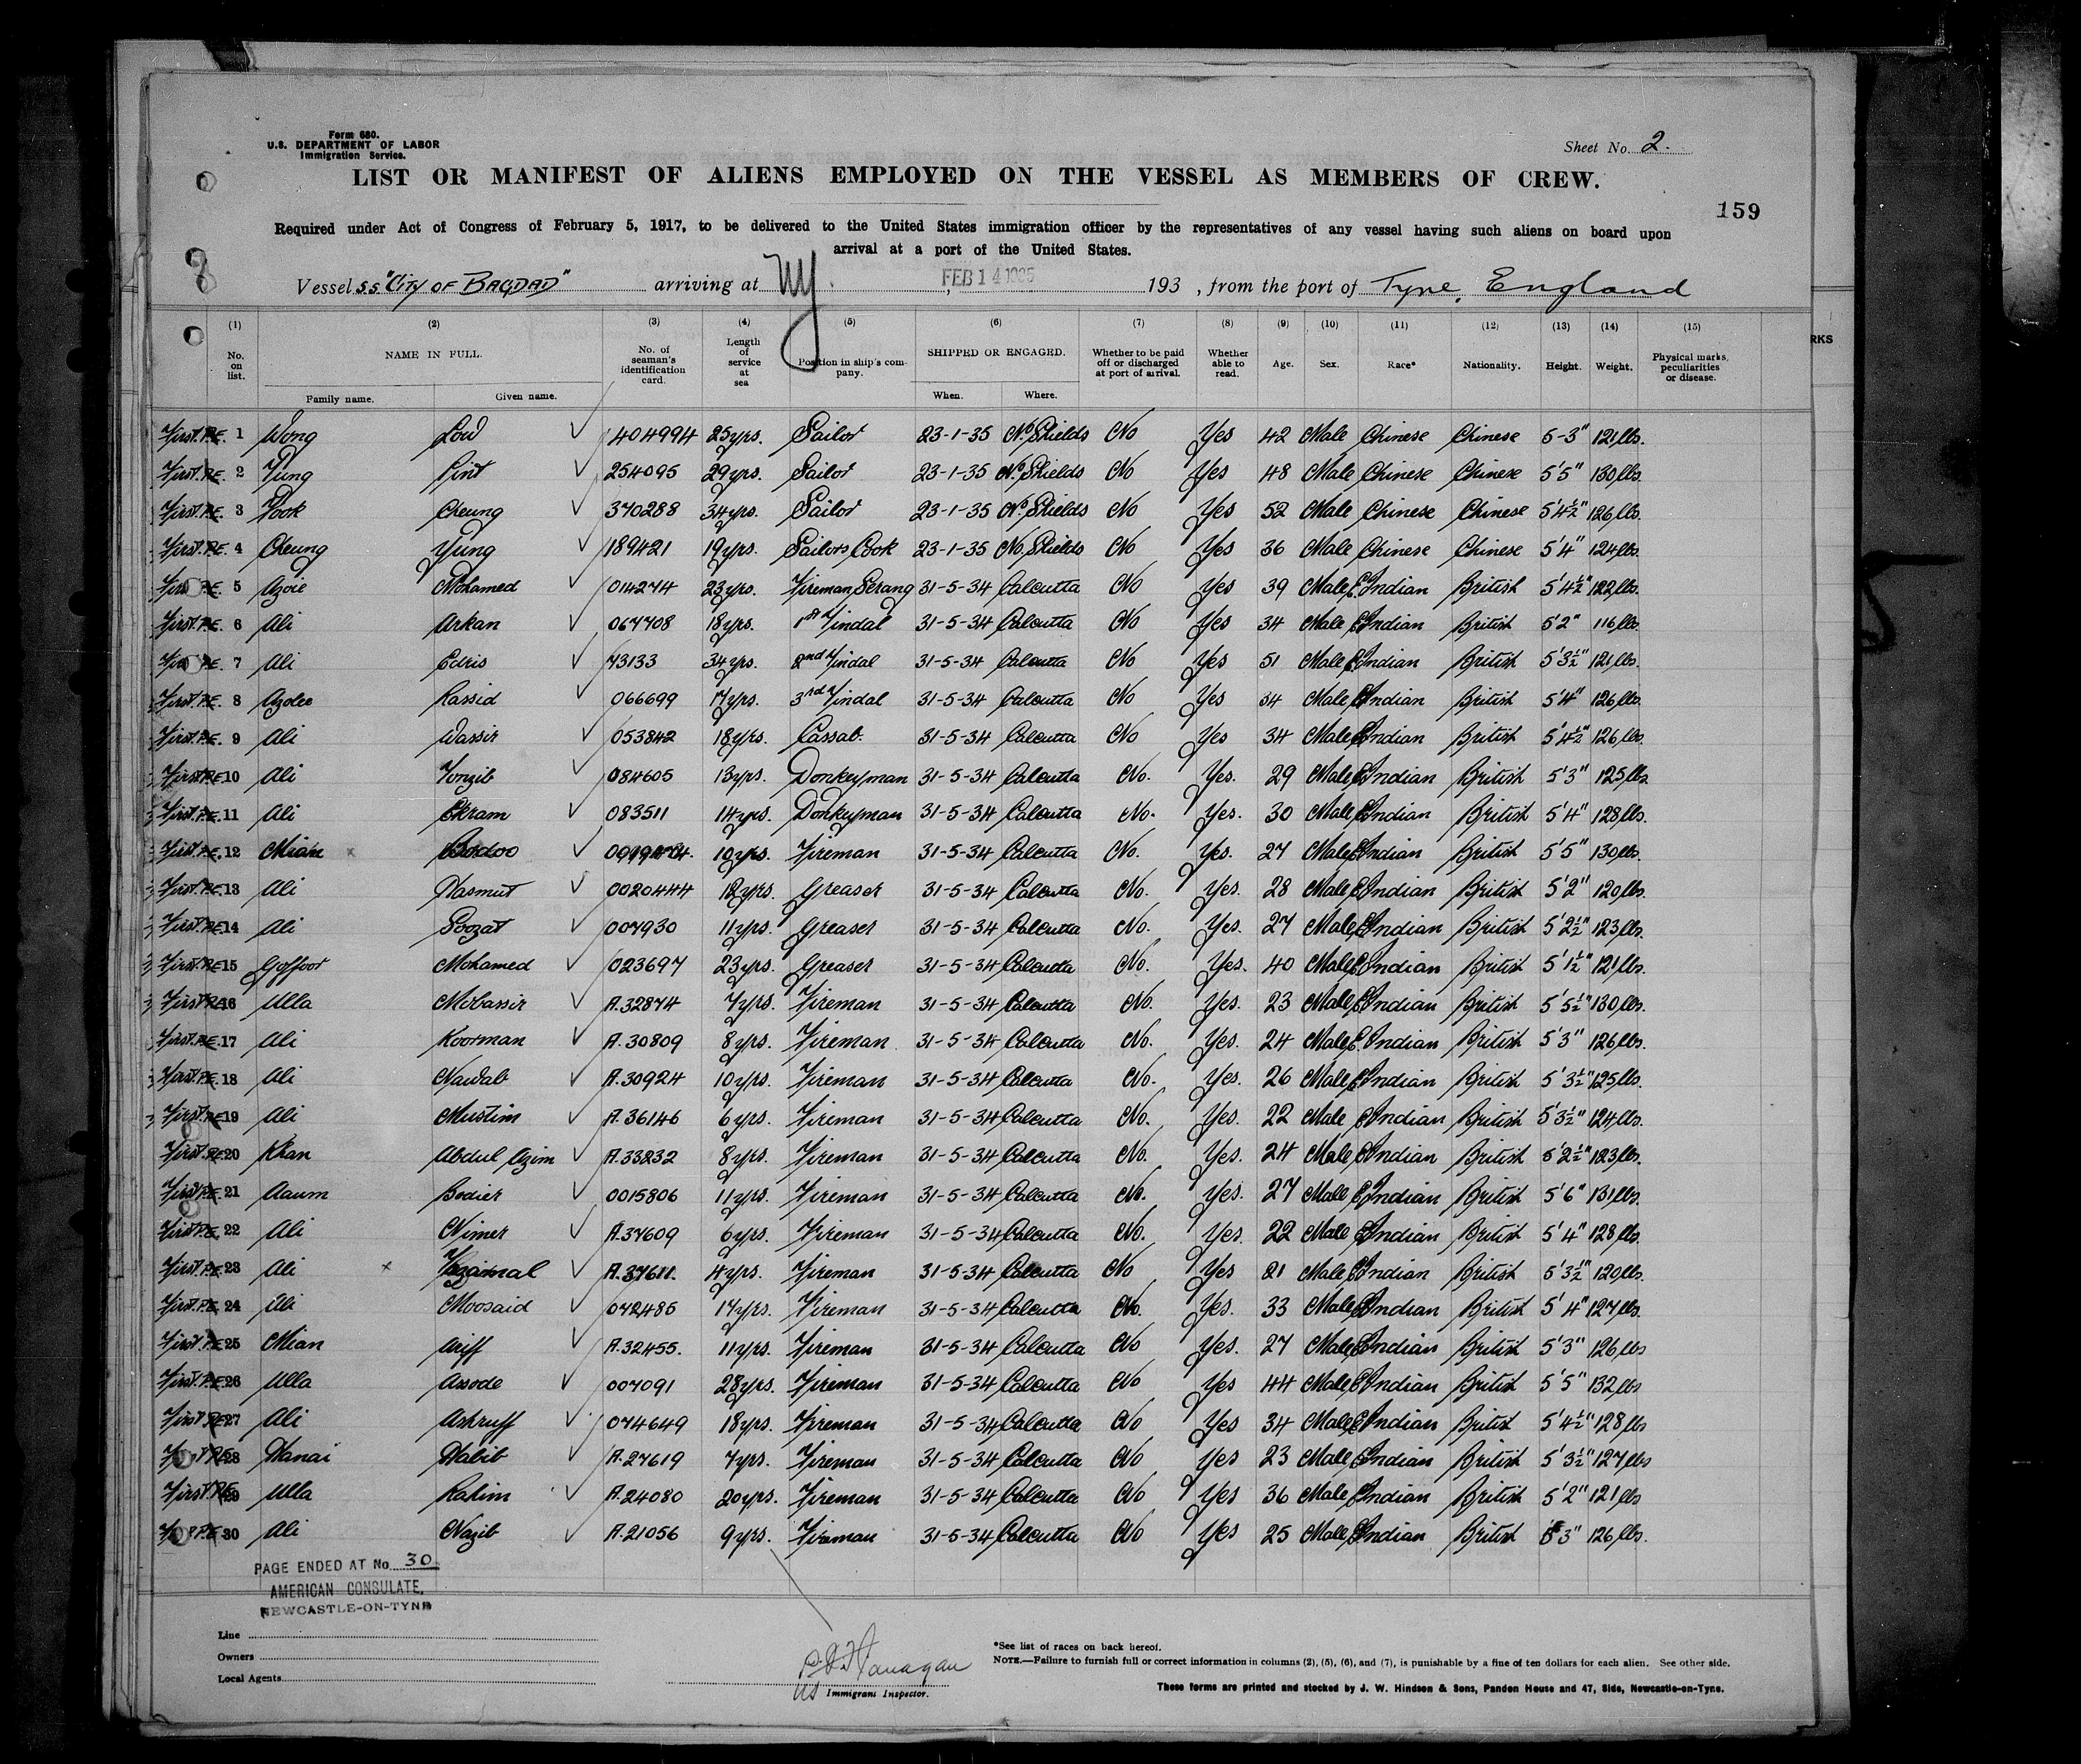 Form 680.
U.S. DEPARTMENT OF LABOR
Immigration Service.
Sheet No. 2.
LIST OR MANIFEST OF ALIENS EMPLOYED ON THE VESSEL AS MEMBERS OF CREW.
159
Required under Act of Congress of February 5, 1917, to be delivered to the United States immigration officer by the representatives of any vessel having such aliens on board upon
arrival at a port of the United States.
Vessel S.S. "CITY OF BAGDAD" arriving at NY. FEB 14 1935, 193 , from the port of Tyne, England
(1) (2) (3) (4) (5) (6) (7) (8) (9) (10) (11) (12) (13) (14) (15)
No. on list. NAME IN FULL. Family name. Given name. No. of seaman's identification card. Length of service at sea Position in ship's company. SHIPPED OR ENGAGED. When. Where. Whether to be paid off or discharged at port of arrival. Whether able to read. Age. Sex. Race* Nationality. Height. Weight. Physical marks, peculiarities or disease.
RKS
First P.E. 1 Wong Low 404994 25yrs. Sailor 23-1-35 No. Shields No Yes 42 Male Chinese Chinese 5-3" 121 lbs.
First P.E. 2 Yung Pint 254095 29yrs. Sailor 23-1-35 No. Shields No Yes 48 Male Chinese Chinese 5'5" 130 lbs.
First P.E. 3 Fook Cheung 370288 34yrs. Sailor 23-1-35 No. Shields No Yes 52 Male Chinese Chinese 5'4½" 126 lbs.
First P.E. 4 Cheung Yung 189421 19yrs. Sailors Cook 23-1-35 No. Shields No Yes 36 Male Chinese Chinese 5'4" 124 lbs.
P.E. 5 Azoie Mohamed 014274 23yrs. Fireman Serang 31-5-34 Calcutta No Yes 39 Male E. Indian British 5'4½" 122 lbs.
First P.E. 6 Ali Arkan 067708 18yrs. 1st Tindal 31-5-34 Calcutta No Yes 34 Male E. Indian British 5'2" 116 lbs.
P.E. 7 Ali Edris 73133 34yrs. 2nd Tindal 31-5-34 Calcutta No Yes 51 Male E. Indian British 5'3½" 121 lbs.
First P.E. 8 Azolee Rassid 066699 17yrs. 3rd Tindal 31-5-34 Calcutta No Yes 34 Male E. Indian British 5'4" 126 lbs.
First P.E. 9 Ali Wassir 053842 18yrs. Cassab. 31-5-34 Calcutta No Yes 34 Male E. Indian British 5'4½" 126 lbs.
First P.E. 10 Ali Tonzib 084605 13yrs. Donkeyman 31-5-34 Calcutta No. Yes. 29 Male E. Indian British 5'3" 125 lbs
First P.E. 11 Ali Ekram 083511 14yrs. Donkeyman 31-5-34 Calcutta No. Yes. 30 Male E. Indian British 5'4" 128 lbs.
First P.E. 12 Mian 10yrs. Fireman 31-5-34 Calcutta No. Yes. 27 Male E. Indian British 5'5" 130 lbs.
First P.E. 13 Ali Hasmut 0020444 12yrs. Greaser 31-5-34 Calcutta No. Yes. 28 Male E. Indian British 5'2" 120 lbs.
First P.E. 14 Ali Soozat 007930 11yrs. Greaser 31-5-34 Calcutta No. Yes. 27 Male E. Indian British 5'2½" 123 lbs.
First P.E. 15 Goffoor Mohamed 023697 23yrs. Greaser 31-5-34 Calcutta No. Yes. 40 Male E. Indian British 5'1½" 121 lbs.
First P.E. 16 Ulla Mobassir A.32874 7yrs. Fireman 31-5-34 Calcutta No. Yes. 23 Male E. Indian British 5'5½" 130 lbs.
First P.E. 17 Ali Kootman A.30809 8yrs. Fireman 31-5-34 Calcutta No. Yes. 24 Male E. Indian British 5'3" 126 lbs.
First P.E. 18 Ali Nawab A.30924 10yrs. Fireman 31-5-34 Calcutta No. Yes. 26 Male E. Indian British 5'3½" 125 lbs.
First P.E. 19 Ali Mustim A.36146 6yrs. Fireman 31-5-34 Calcutta No. Yes. 22 Male E. Indian British 5'3½" 124 lbs.
First P.E. 20 Khan Abdul Azim A.33232 8yrs. Fireman 31-5-34 Calcutta No. Yes. 24 Male E. Indian British 5'2½" 123 lbs.
First P.E. 21 Aaum Bodier 0015806 11yrs. Fireman 31-5-34 Calcutta No. Yes. 27 Male E. Indian British 5'6" 131 lbs.
First P.E. 22 Ali Nimer A.37609 6yrs. Fireman 31-5-34 Calcutta No. Yes. 22 Male E. Indian British 5'4" 128 lbs.
First P.E. 23 Ali A.37611. 4yrs. Fireman 31-5-34 Calcutta No Yes 21 Male E. Indian British 5'3½" 120 lbs.
First P.E. 24 Ali Moosaid 072485 17yrs. Fireman 31-5-34 Calcutta No. Yes. 33 Male E. Indian British 5'4" 127 lbs.
First P.E. 25 Mian Ariff A.32455. 11yrs. Fireman 31-5-34 Calcutta No Yes. 27 Male E. Indian British 5'3" 126 lbs
First P.E. 26 Ulla Assode 007091 28yrs. Fireman 31-5-34 Calcutta No Yes 44 Male E. Indian British 5'5" 132 lbs
First P.E. 27 Ali Ashruff 074649 18yrs. Fireman 31-5-34 Calcutta No Yes 34 Male E. Indian British 5'4½" 128 lbs
P.E. 28 Hanai Habib A.27619 7yrs. Fireman 31-5-34 Calcutta No Yes 23 Male E. Indian British 5'3½" 127 lbs
First P.E. 29 Ulla Rahim A.24080 20yrs. Fireman 31-5-34 Calcutta No Yes 36 Male E. Indian British 5'2" 121 lbs
P.E. 30 Ali Nazib A.21056 9yrs. Fireman 31-5-34 Calcutta No Yes 25 Male E. Indian British 5'3" 126 lbs.
PAGE ENDED AT No. 30
AMERICAN CONSULATE,
NEWCASTLE-ON-TYNE
Line
Owners
Local Agents
Flanagan
US Immigrant Inspector.
*See list of races on back hereof.
NOTE.—Failure to furnish full or correct information in columns (2), (5), (6), and (7), is punishable by a fine of ten dollars for each alien. See other side.
These forms are printed and stocked by J. W. Hindson & Sons, Pandon House and 47, Side, Newcastle-on-Tyne.